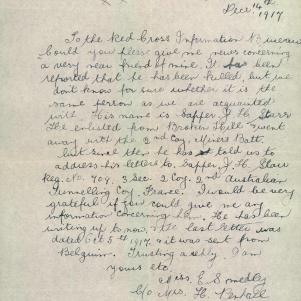 Dec 14th
1917
To the Red Cross Information Bureau
Could you please give me news concerning
a very near friend of mine. It has been
reported that he has been killed, but we
don't know for sure whether it is the
same person as we are acquainted
with. His name is Sapper J. H. Starr
He enlisted from Broken Hill & went
away with the 2nd Coy. Miners Batt.
last since then he has told us to
address his letters to. Sapper J. H. Starr
Reg. No. 704. 3 Sec. 2 Coy. 2nd Australian
Tunnelling Coy. France. I would be very
grateful if you could give me any
information concerning him. He has been
writing up to now. The last letter was
dated Oct 5th 1917. & it was sent from
Belgium. Trusting as I am
yours etc
Miss. E. Smedley
C/o Mrs. H.